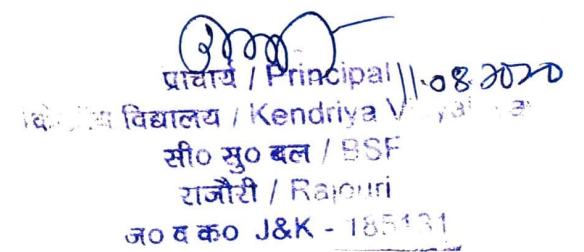 प्राचार्य / Principal 11.08.2020
विद्यालय / Kendriya
सी० सु० बल / BSF
राजौरी / Rajouri
ज० व क० J&K - 185131